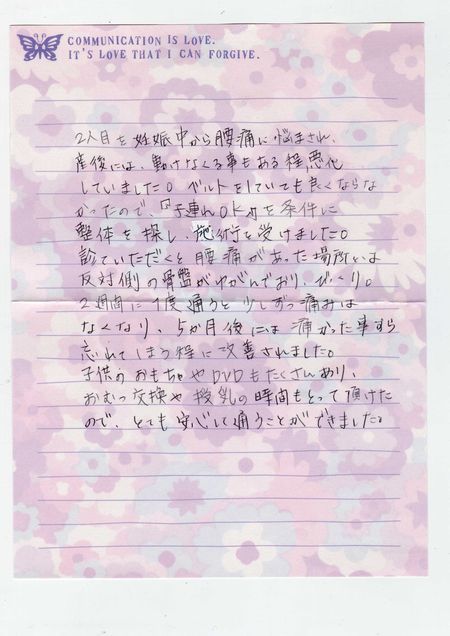 COMMUNICATION IS LOVE.
IT'S LOVE THAT I CAN FORGIVE.
2人目を妊娠中から腰痛に悩まされ、
産後には、動けなくなる事もある程悪化
していました。ベルトをしていても良くならな
かったので、「子連れOK」を条件に
整体を探し、施術を受けました。
診ていただくと腰痛があった場所とは
反対側の骨盤がゆがんでおり、びっくり。
2週間に1度通うと少しずつ痛みは
なくなり、5か月後には痛かった事すら
忘れてしまう程に改善されました。
子供のおもちゃやDVDもたくさんあり、
おむつ交換や授乳の時間もとって頂けた
ので、とても安心して通うことができました。